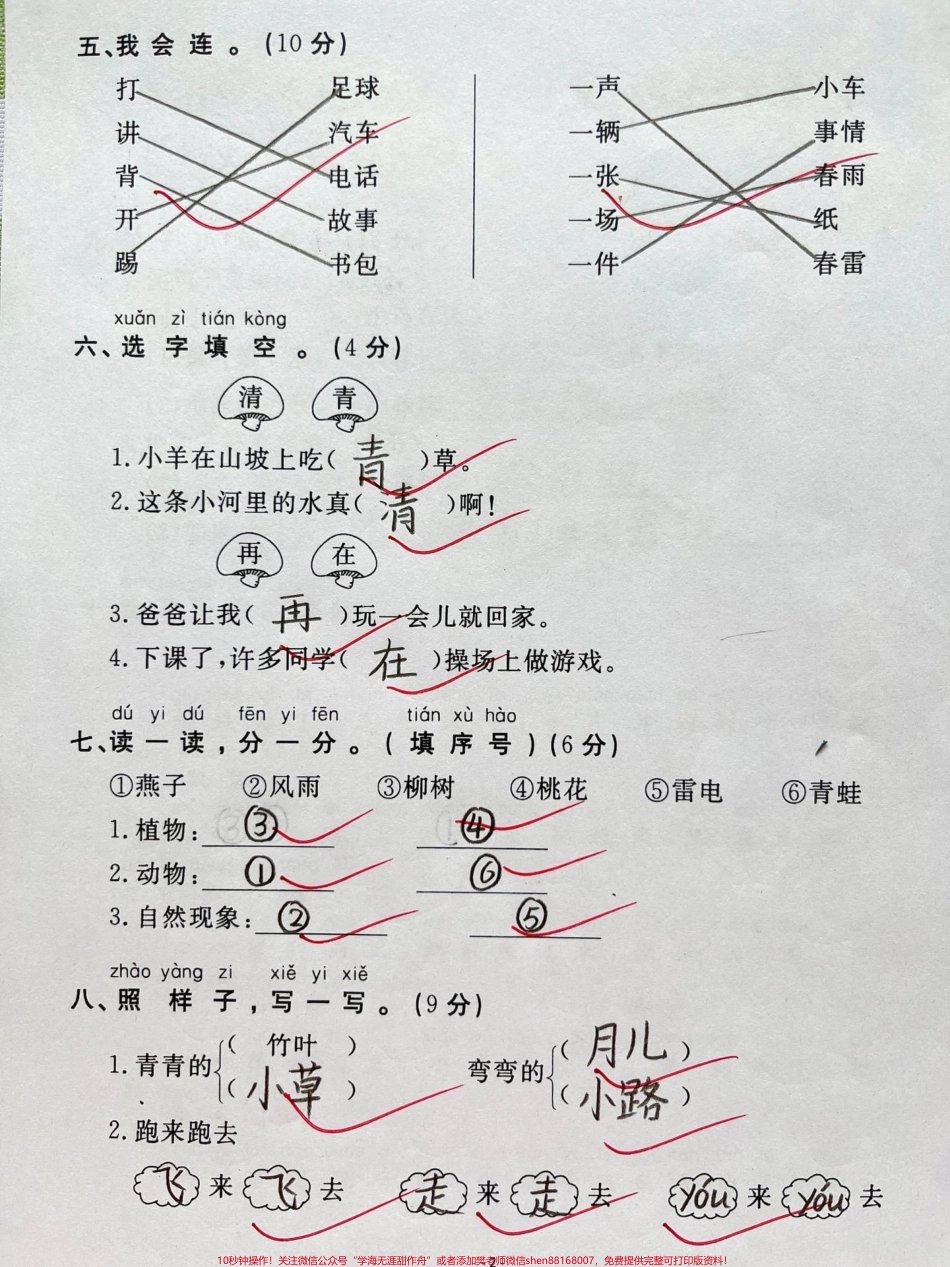 五、我会连。(10分)
打 足球 一声 小车
讲 汽车 一辆 事情
背 电话 一张 春雨
开 故事 一场 纸
踢 书包 一件 春雷
xuǎn zì tián kòng
六、选字填空。(4分)
清 青
1.小羊在山坡上吃(青)草。
2.这条小河里的水真(清)啊!
再 在
3.爸爸让我(再)玩一会儿就回家。
4.下课了,许多同学(在)操场上做游戏。
dú yi dú fēn yi fēn tián xù hào
七、读一读,分一分。(填序号)(6分)
①燕子 ②风雨 ③柳树 ④桃花 ⑤雷电 ⑥青蛙
1.植物:③ ④
2.动物:① ⑥
3.自然现象:② ⑤
zhào yàng zi xiě yi xiě
八、照样子,写一写。(9分)
(竹叶) (月儿)
1.青青的 弯弯的
(小草) (小路)
2.跑来跑去
飞来飞去 走来走去 yóu来yóu去
10秒钟操作!关注微信公众号“学海无涯甜作舟”或者添加樊老师微信shen88168007,免费提供完整可打印版资料!
2